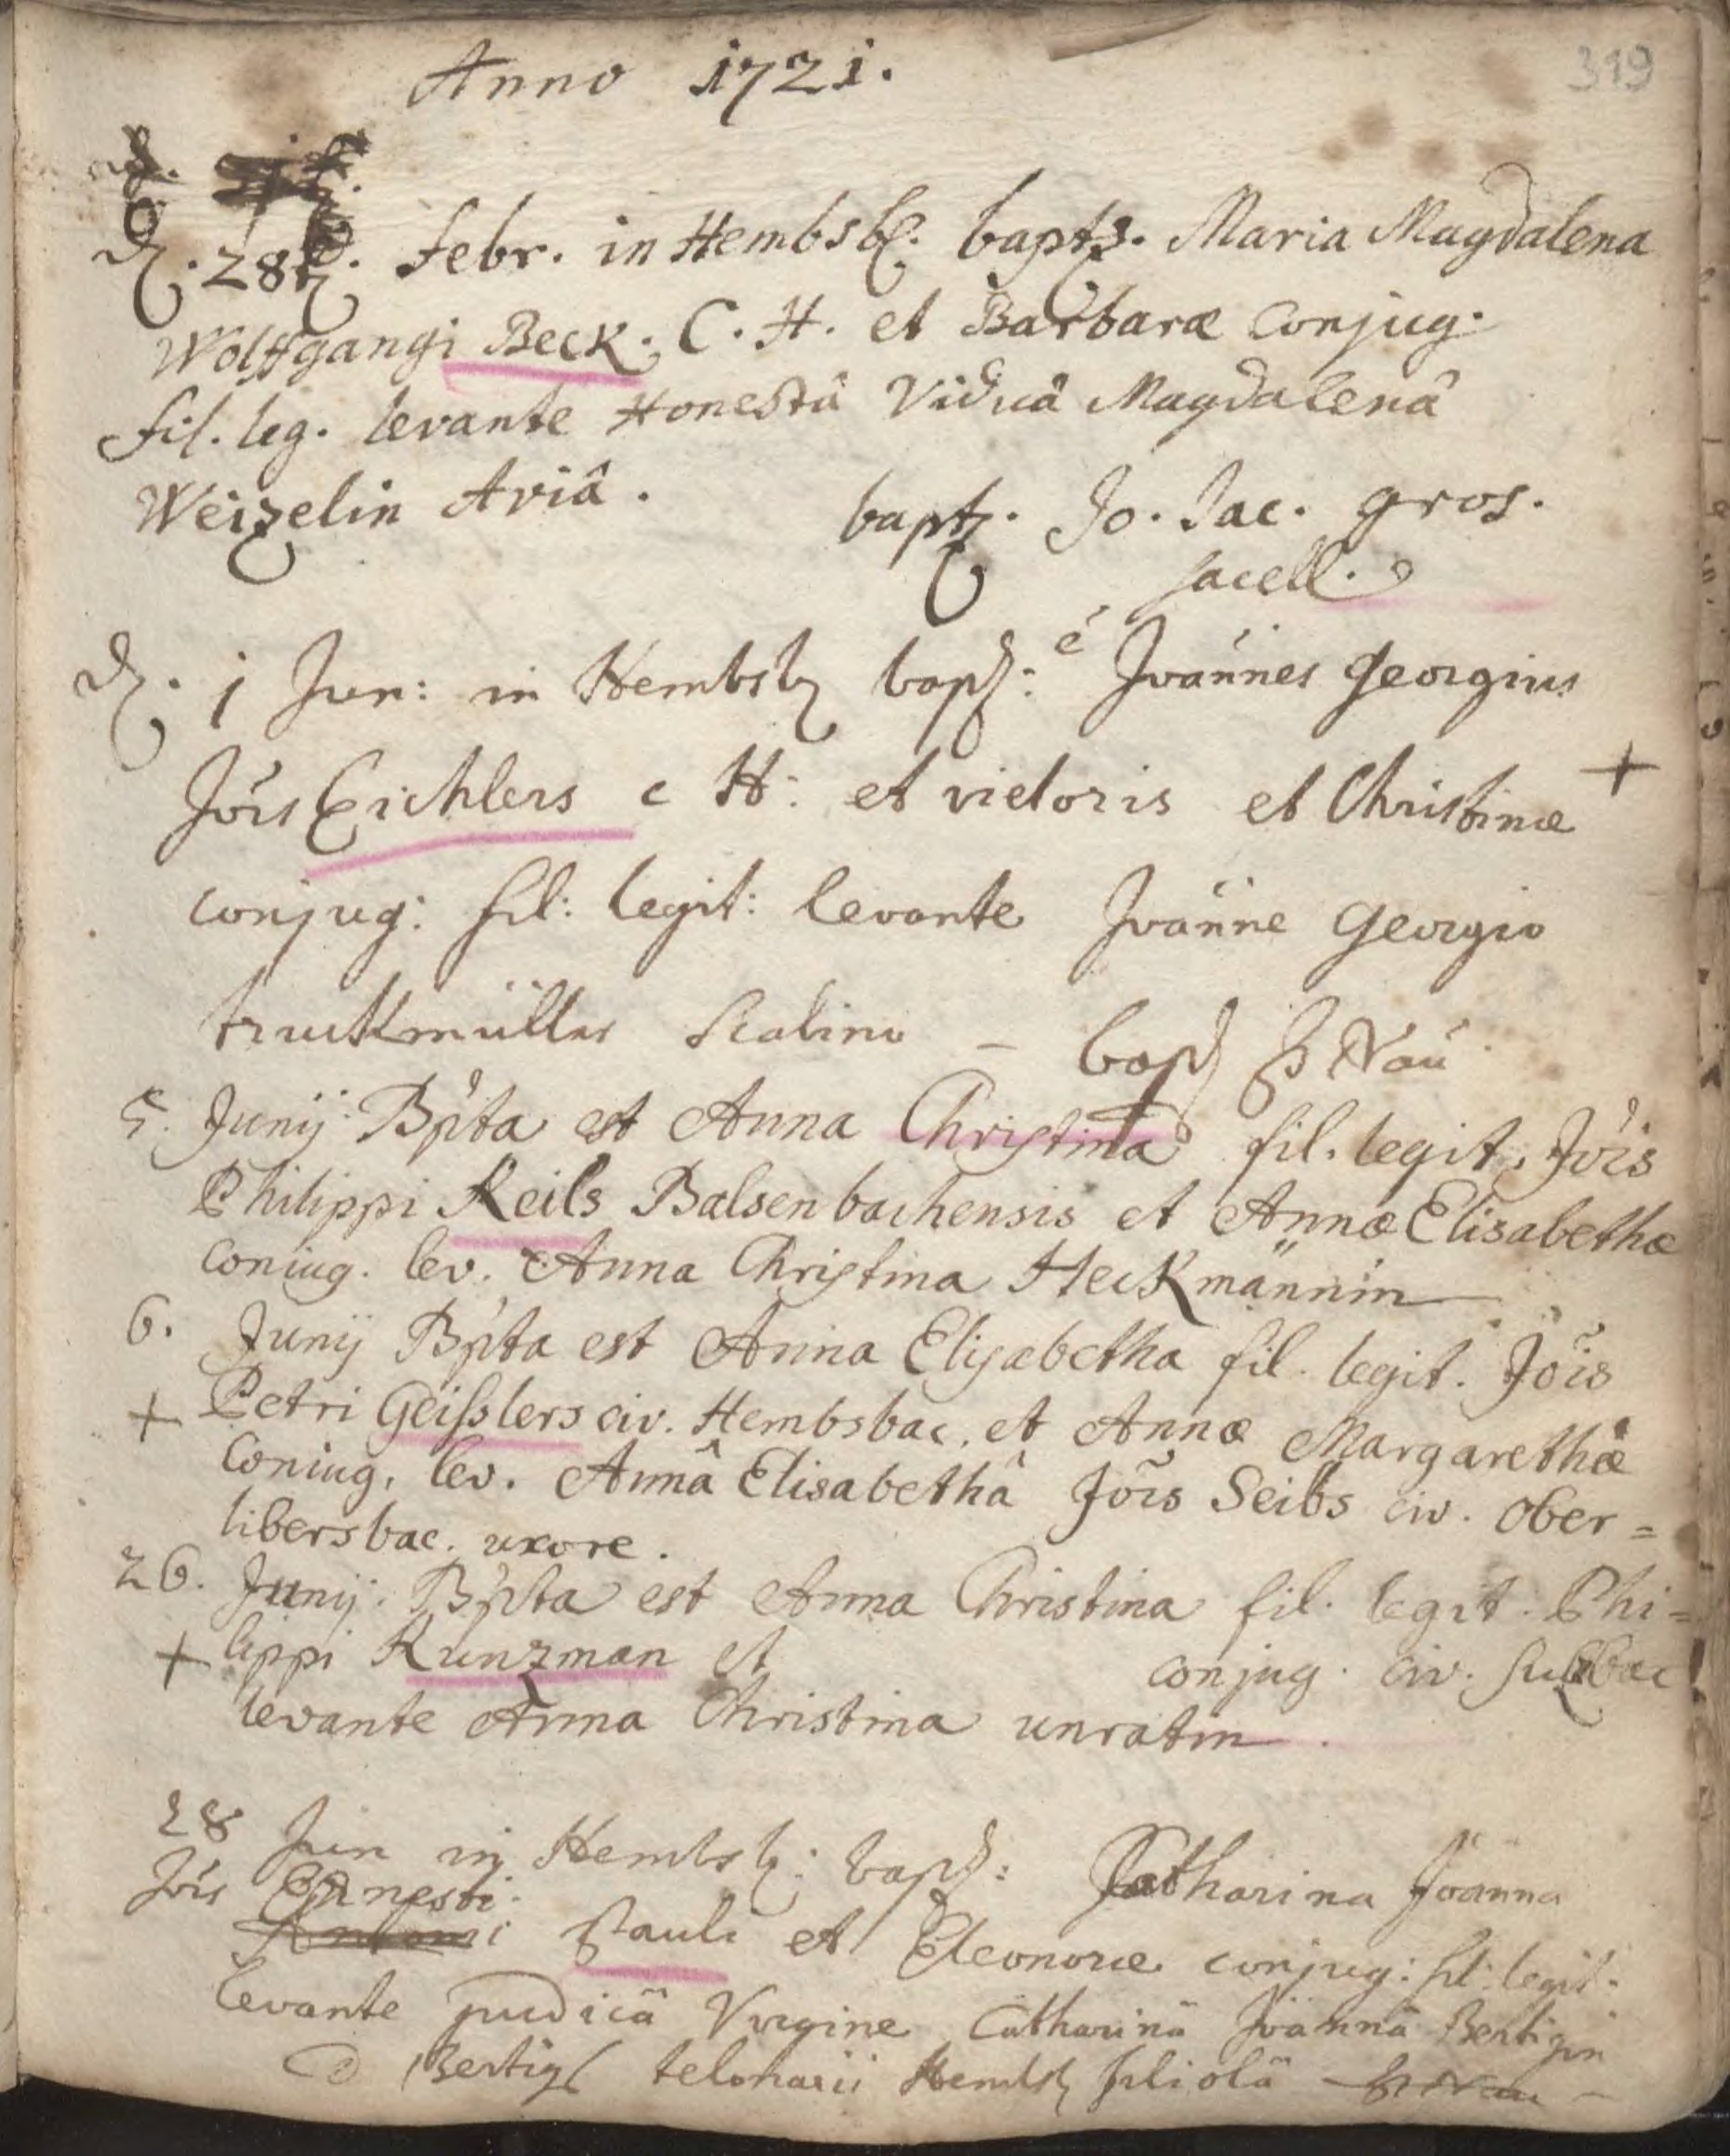 319
Anno 1721.
d. 28 t. febr. in Hembsb. baptz. Maria Magdalena
Wolffgangi Beck. C. H. et Barbaræ Conjug.
fil. leg. levante Honestâ Viduâ Magdalenâ
Weizelin Aviâ.
baptz. Jo. Jac. gros.
sacell.
d. 1 Jun: in Hembsb bapt: é Joannes Georgius
Jois Eichlers c H: et vietoris et Christinæ +
conjug: fil: legit: levante Joanne Georgio
truckmüller Scabino – bapt Nau
5. Junij Bpta est Anna Christina fil. legit. Jois
Philippi Keils Balsenbachensis et Annæ Elisabethæ
coniug. lev. Anna Christina Heckmännin
6. Junij Bpta est Anna Elisabetha fil. legit. Jois
+ Petri Geisslers civ. Hembsbac. et Annæ Margarethæ
Coniug. lev. Annâ Elisabethâ Jois Seibs civ. Ober=
libersbac. uxore.
26. Junij. Bpta est Anna Christina fil. legit. Phi=
+ lippi Kunzman et conjug. civ. Sulzbac
levante Anna Christina unratin.
28 Jun in Hembsb: bapt: Catharina Joanna
Jois Ernesti
Antoni Pauli et Eleonoræ conjug: fil: legit:
levante pudicâ Virgine Catharinâ Joannâ Bertigin
D Bertigs telonarii Hembsb filiolâ